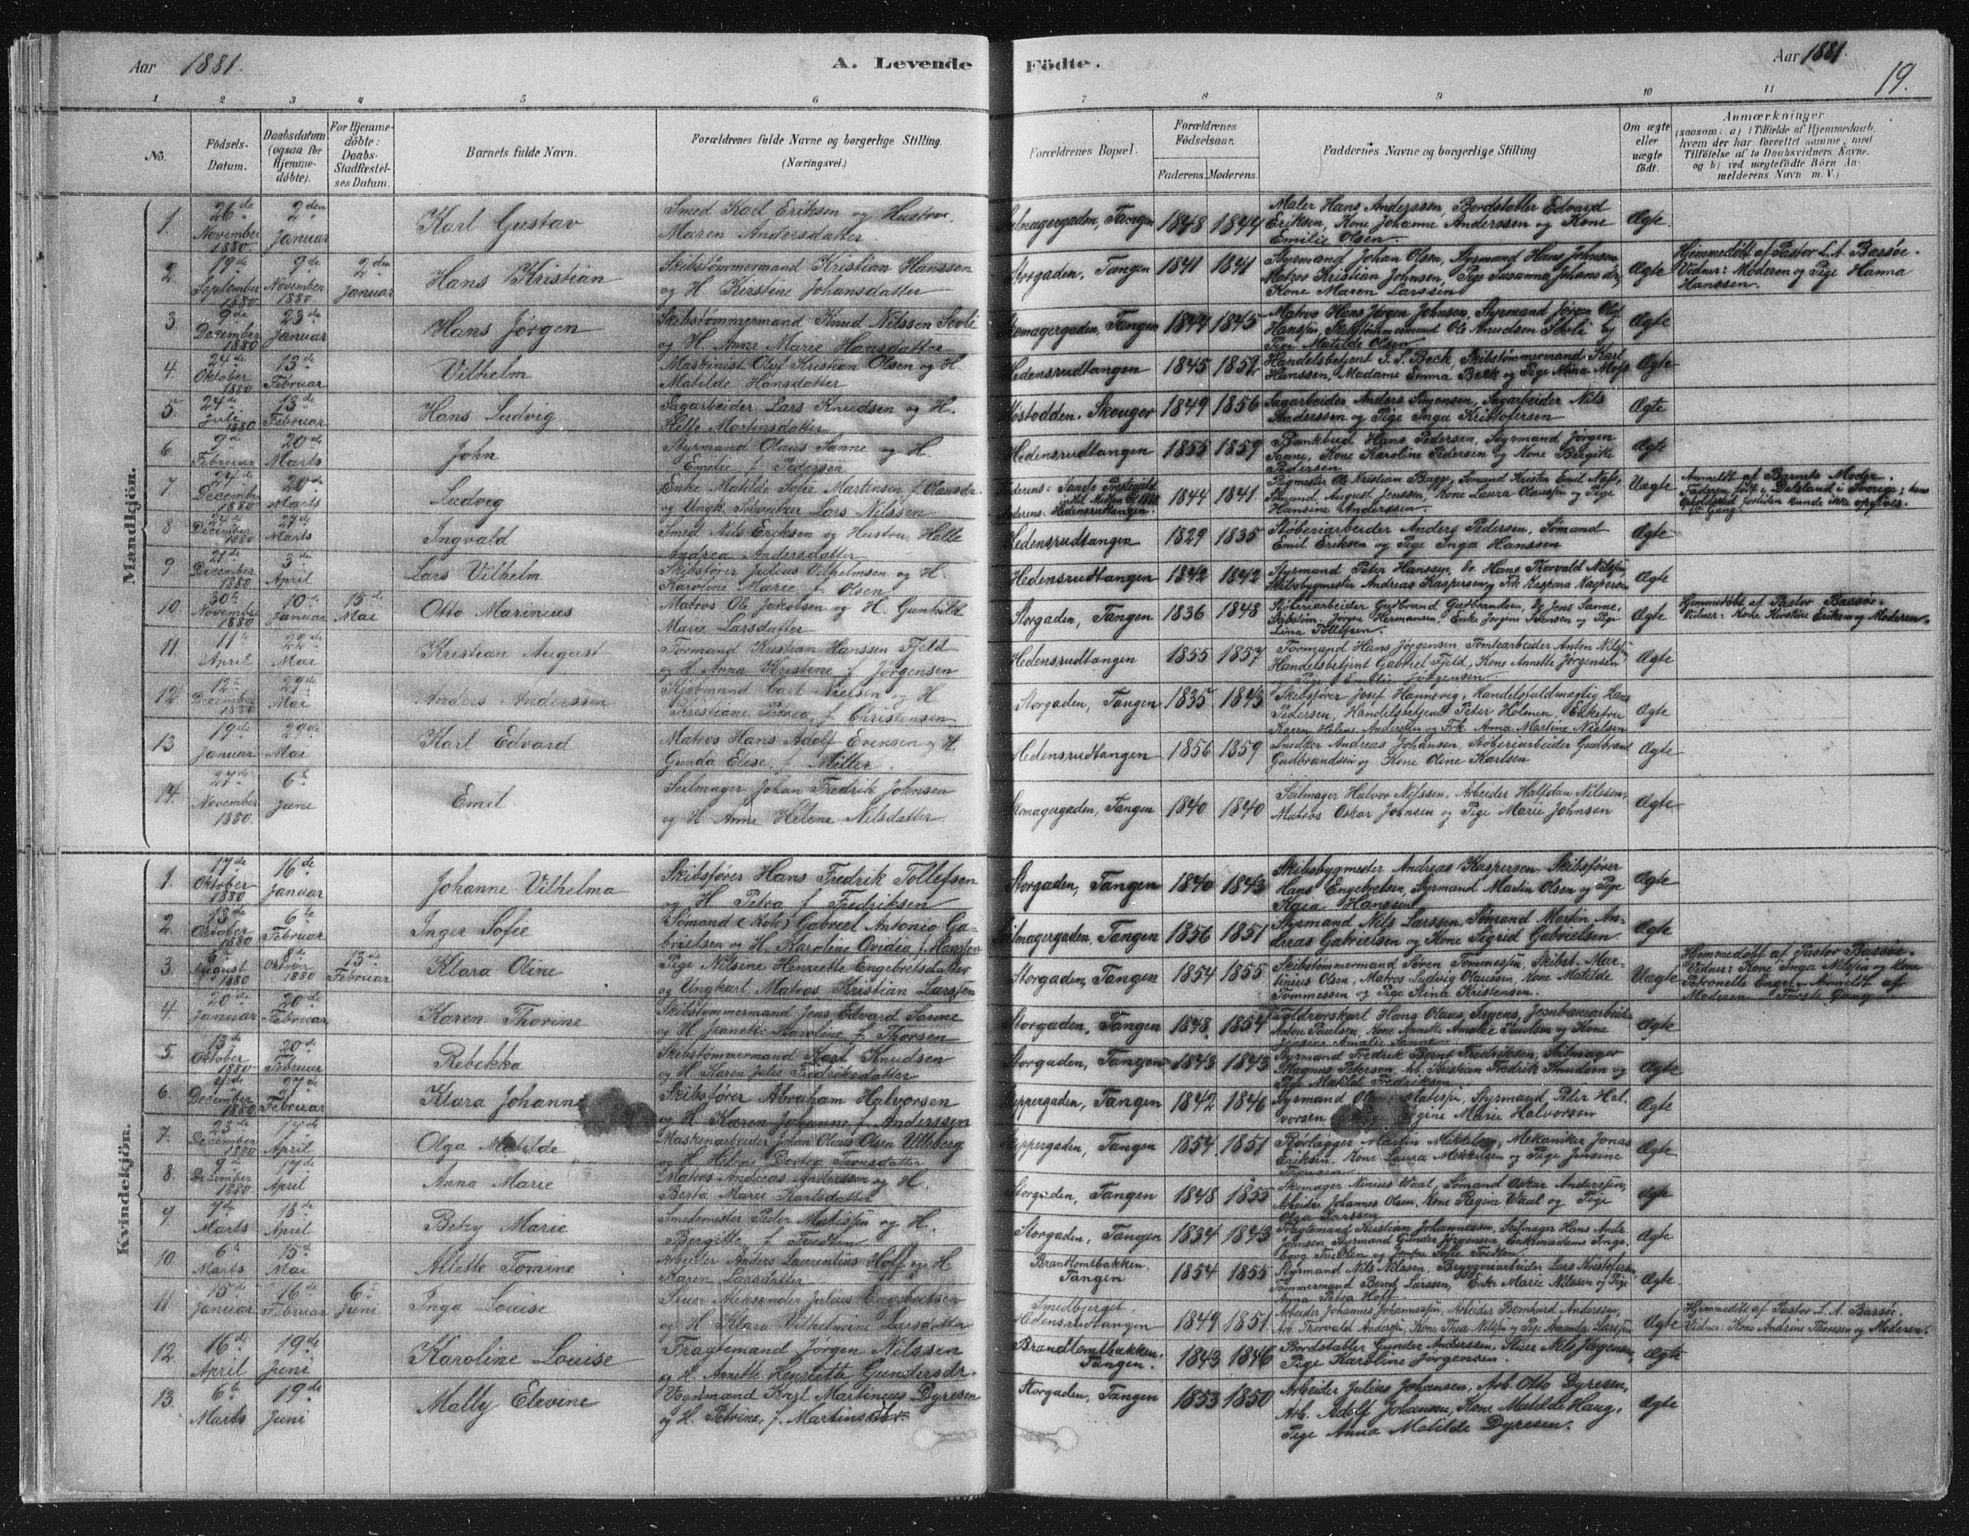 Aar 1881.
A. Levende Födte.
Aar 1881.
19.
1 2 3 4 5 6 7 8 9 10 11
No.
Födsels-Datum.
Daabsdatum (ogsaa for Hjemme-döbte).
For Hjemme-döbte: Daabs-Stadfæstel-ses Datum.
Barnets fulde Navn.
Forældrenes fulde Navne og borgerlige Stilling (Næringsvei.)
Forældrenes Bopæl.
Forældrenes Födselsaar.
Faderens. Moderens.
Faddernes Navne og borgerlige Stilling
Om ægte eller uægte födt.
Anmærkninger
(saasom: a) i Tilfælde af Hjemmedaab,
hvem der har forrettet samme, med
Tilföielse af to Daabsvidners Navne.
og b) ved uægtefödte Börn An-
melderens Navn m. V.)
Mandkjön.
1. 26de November 1880 2den Januar Karl Gustav Smed Karl Eriksen og Hustru Maren Andersdatter. Tangen 1848 1844 Maler Hans Anderssen, Bordstabler Edvard Eriksen, Kone Johanne Anderssen og Kone Emilie Olsen. Ægte
2. 19de September 1880 9de November 1880 2den Januar Hans Kristian Skibstømmermand Kristian Hanssen og H. Kirstine Johansdatter Storgaden, Tangen 1841 1841 Styrmand Johan Olsen, Styrmand Hans Johnsen, Matros Kristian Johnsen, Pige Susanna Johansdr, Kone Maren Larssen Ægte Hjemmedöbt af Pastor L. A. Bassøe. Vidner: Moderen og Pige Hanna Hanssen.
3. 9de December 1880 23de Januar Hans Jørgen Skibstømmermand Knud Nilssen og H. Anne Marie Hansdatter Tangen 1844 1845 Matros Hans Jørgen Johnsen, Styrmand Jørgen Olaf Hanssen, Skibstømmermand Ole Knudsen og Pige Matilde Olsen Ægte
4. 24de Oktober 1880 13de Februar Vilhelm Maskinist Oluf Kristian Olsen og H. Matilde Hansdatter Hedensrudtangen 1845 1852 Handelsbetjent Beck, Skibstømmermand Karl Hanssen, Madame Emma Beck og Pige Mina Ægte
5. 24de Juli 1880 13de Februar Hans Ludvig Sagarbeider Lars Knudsen og H. Helle Martinsdatter Skouger 1849 1856 Sagarbeider Anders Simensen, Sagarbeider Nils Anderssen og Pige Inga Kristofersen Ægte
6. 9de Februar 20de Marts John Styrmand Olaus Sanne og H. Emelie f. Pedersen Hedensrudtangen 1855 1859 Bankbud Hans Pedersen, Styrmand Jørgen Sanne, Kone Karoline Pedersen og Kone Birgitte Pedersen Ægte
7. 24de December 20de Marts Ludvig Enke Matilde Sofie Martinsen f. Olausdr. og Ungk. Lars Nilssen Hedensrudtangen. 1844 1841 Sømand August Jenssen, Kone Laura Olaussen og Pige Hansine Anderssen. Uægte Anmeldt af Barnets Moder.
8 December 1880 27de Marts Ingvald Smed Nils Eriksen og Hustru Helle Andrea Andersdatter Hedensrudtangen 1829 1835 Støberiarbeider Anders Pedersen, Sømand Emil Eriksen og Pige Inga Hanssen Ægte
9. 21de December 1880 3die April Lars Vilhelm Skibsfører Julius Vilhelmsen og H. Karoline Marie f. Olsen. Hedensrudtangen 1842 1842 Styrmand Peter Hanssen, do Hans Thorvald Nilssen, Skibsbygmester Andreas Kaspersen og Frk Kaspara Kaspersen Ægte
10. 30te November 1880 10de Januar 15de Mai Otto Marinius Matros Ole Jakobsen og H. Gunhild Marie Larsdatter Storgaden, Tangen 1836 1848 Støberiarbeider Gudbrand Gudbrandsen, Jens Sanne, Jørgen Hermansen, Enke Jørgine Bensen og Pige Lina Tollefsen. Ægte Hjemmedöbt af Pastor Bassøe. Vidner: Kone Kirstine Eriksen og Moderen.
11. 11te April 22de Mai Kristian August Formand Kristian Hanssen Fjeld og H. Anna Kristine f. Jørgensen Hedensrudtangen 1855 1857 Formand Hans Jørgensen, Tomtearbeider Anton Nilssen, Handelsbetjent Gabriel Fjeld, Kone Annette Jørgensen, Pige Emilie Jørgensen Ægte
12. 12te December 1880 29de Mai Anders Anderssen Carl Nielsen og H. Kristiane Petrea, f. Christensen Storgaden, Tangen 1835 1843 Skibsfører Josef Hannevig, Handelsfuldmægtig Hans Pedersen, Handelsbetjent Peter Holmen, Enkefru Karen Helene Andersen og Frk. Anna Martine Nielsen Ægte
13 19de Januar 29de Mai Karl Edvard Matros Hans Adolf Evensen og H. Gunda Elise, f. Möller. Hedensrudtangen 1856 1859 Snedker Andreas Johansen, Støberiarbeider Gudbrand Gudbrandsen og Kone Oline Karlsen Ægte
14. 27de November 1880 6te Juni Emil Seilmager Johan Fredrik Johnsen og H. Anne Helene Nilsdatter Tangen 1840 1840 Seilmager Halvor Nilssen, Arbeider Halfdan Nilssen, Matros Oskar Johnsen og Pige Marie Johnsen Ægte
Kvindekjön.
1. 17de Oktober 1880 16de Januar Johanne Vilhelma Skibsfører Hans Fredrik Tollefsen og H. Petra f. Fredriksen Storgaden, Tangen 1840 1843 Skibsbygmester Andreas Kaspersen, Skibsfører Hans Engebretsen, Styrmand Martin Olsen og Pige Kaia Hanssen Ægte
2. 13de October 1880 6te Februar Inger Sofie Sømand (Kok) Gabriel Antonio Gabrielsen og H. Karoline Ovidia f. Hanssen Seilmagergaden, Tangen 1856 1851 Styrmand Nils Larssen, Sømand Martin Andreas Gabrielsen og Kone Sigrid Gabrielsen Ægte
3. 6te August 1880 8de Oktober 1880 13de Februar Klara Oline Pige Nilsine Henriette Engebretsdatter og Ungkarl, Matros Kristian Larssen Storgaden, Tangen 1854 1855 Skibstømmermand Søren Tommessen, Skibst. Martinius Olsen, Matros Ludvig Olaussen, Kone Matilde Tommessen og Pige Stina Kristensen. Uægte Hjemmedöbt af Pastor Bassøe. Vidner: Kone Inga Nilssen og Kone Petronelle Engel. Anmeldt af Moderen. Første Gang
4. 20de Januar 20de Februar Karen Thorine Skibstømmermand Jens Edvard Sanne og H. Jeanette Karoline f. Thorsen Storgaden, Tangen 1848 1854 Hans Olaus Anton Poulsen, Kone Annette Amalie Poulsen og Kone Jensine Amalie Sanne Ægte
5. 13de Oktober 1880 20de Februar Rebekka Skibstømmermand Karl Knudsen og H. Karen Julie Fredriksdatter Storgaden, Tangen 1843 1843 Styrmand Fredrik Bernt Fredriksen, Seilmager Magnus Petersen, Arb. Kristian Fredrik Knudsen og Pige Matilde Fredriksen Ægte
6. December 1880 27de Februar Klara Johanne Skibsfører Abraham Halvorsen og H. Karen Johanne f. Anderssen Tangen 1842 1846 Styrmand Styrmand Peter Halvorsen Marie Halvorsen Ægte
7. 23de December 1880 April Olga Matilde Maskinarbeider Johan Olaus Olsen Ulleberg og H. Helene Dortea Tronsdatter Tangen 1854 1851 Rørlægger Martin Mikkelsen, Mekaniker Jonas Eriksen, Kone Laura Mikkelsen og Pige Jensine Tronsen Ægte
8. 9de December 1880 17de April Anna Marie Matros Andreas Anderssen og H. Berta Marie Karlsdatter Storgaden, Tangen 1848 1855 Skomager Ninius Vaal, Sømand Oskar Anderssen, Arbeider Johannes Olsen, Kone Regine Vaal og Pige Olga Larssen Ægte
9 Marts 18de April Betzy Marie Smedemester Peter Matissen og H. Bergitte, f. Tredten Storgaden, Tangen 1834 1843 Fragtemand Kristian Johannessen, Seilmager Hans Andr. Johnsen, Styrmand Gunder Jørgensen Ægte
10 6te Marts 15de Mai Alette Tomine Arbeider Anders Laurentius Hoff og H. Karen Larsdatter Brandtomtbakken, Tangen 1854 1855 Styrmand Nils Nilssen, Bryggeriarbeider Lars Kristofersen, Tømmermand Bent Larssen, Enke Marie Nilssen og Pige Anna Petrea Hoff Ægte
11 15de Januar 16de Februar 6te Juni Inga Louise Stuer Aleksander Julius Engebretsen og H. Klara Vilhelmine Larsdatter Smedbjerget. Hedensrudtangen 1849 1851 Arbeider Johannes Johannessen, Arbeider Bernhard Andersen, Arb. Thorvald Anderssen, Kone Thea Nilssen og Pige Amanda Larssen Ægte Hjemmedöbt af Pastor L. A. Bassøe. Vidner: Kone Andrine Thoresen og Moderen.
12 16de April 19de Juni Karoline Louise Fragtemand Jörgen Nilssen og H. Anette Henriette Gundersdr. Brandtomtbakken, Tangen. 1843 1846 Bordstabler Gunder Anderssen, Stuer Nils Jörgensen, Pige Karoline Jörgensen. Ægte
13. 6te Marts 19de Juni Mally Elevine Vognmand Karl Martinius Dyresen og H. Petrine, f. Martinsdtr. Storgaden, Tangen 1853 1850 Arbeider Julius Johansen, Arb. Otto Dyresen, Arb. Adolf Johansen, Kone Matilde Haug, Pige Anna Matilde Dyresen. Ægte